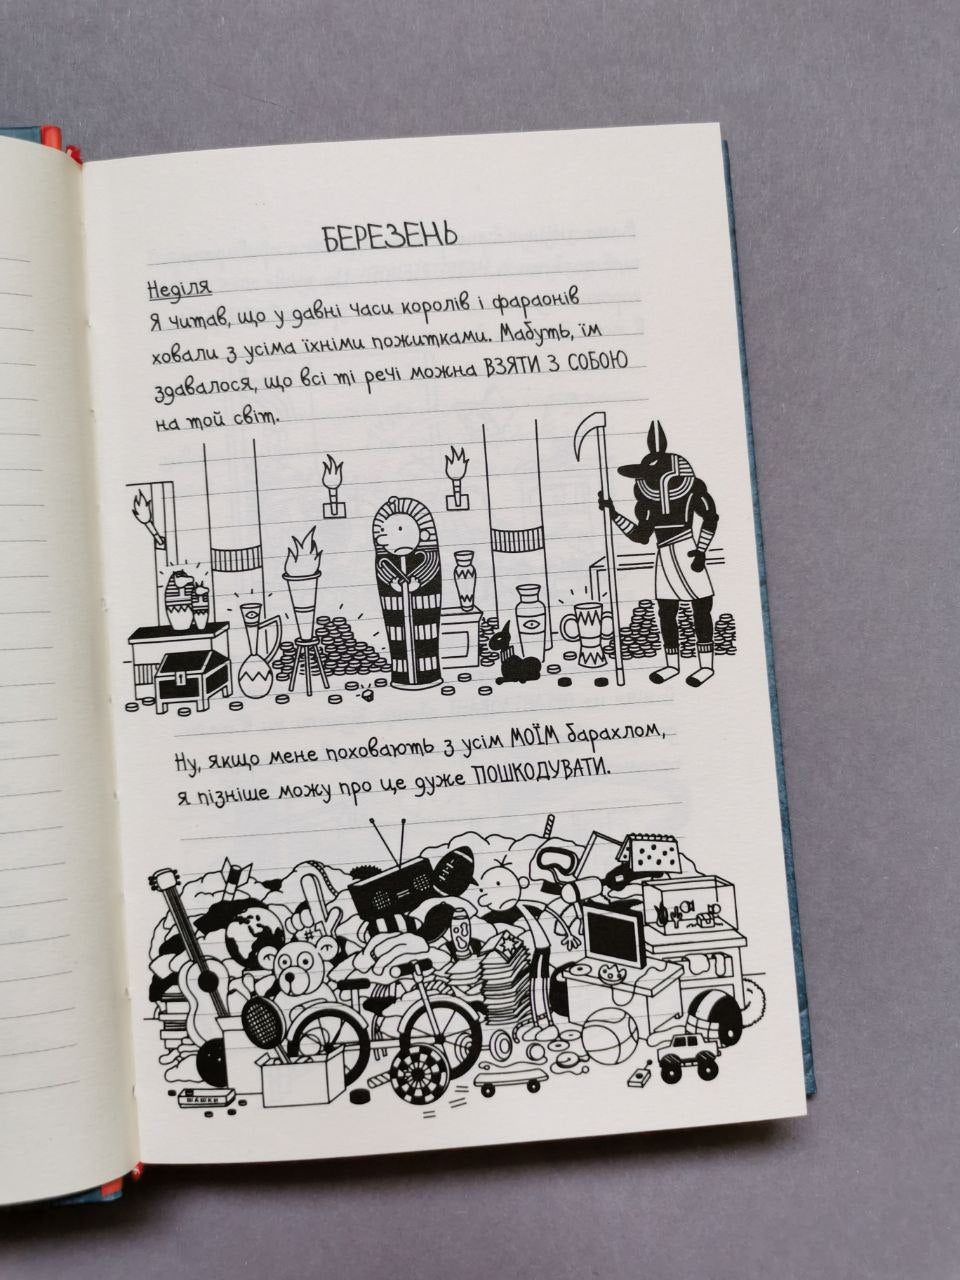 БЕРЕЗЕНЬ
Неділя
Я читав, що у давні часи королів і фараонів
ховали з усіма їхніми пожитками. Мабуть, їм
здавалося, що всі ті речі можна ВЗЯТИ З СОБОЮ
на той світ.
Ну, якщо мене поховають з усім МОЇМ барахлом,
я пізніше можу про це дуже ПОШКОДУВАТИ.
ШАШКИ